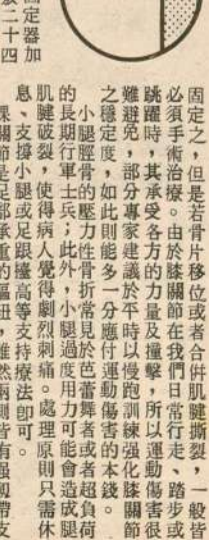 固定之，但是若骨片移位或者合併肌腱撕裂，一般皆
必須手術治療。由於膝關節在我們日常行走、踏步或
跳躍時，其承受各方的力量及撞擊，所以運動傷害很
難避免，部分專家建議於平時以慢跑訓練强化膝關節
之穩定度，如此則能多一分應付運動傷害的本錢。
小腿脛骨的壓力性骨折常見於芭蕾舞者或者超負荷
的長期行軍士兵；此外，小腿過度用力可能會造成腿
肌腱破裂，使得病人覺得劇烈刺痛。處理原則只需休
息、支撐小腿或足跟擡高等支持療法卽可。
踝關節是足部承重的樞紐，雖然兩側皆有强韌帶支
固定器加
二十四